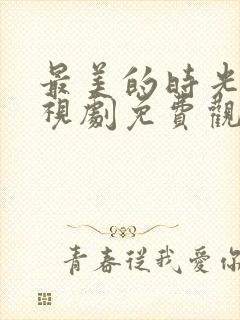 最美的時光
視劇免費觀
青春從我愛你